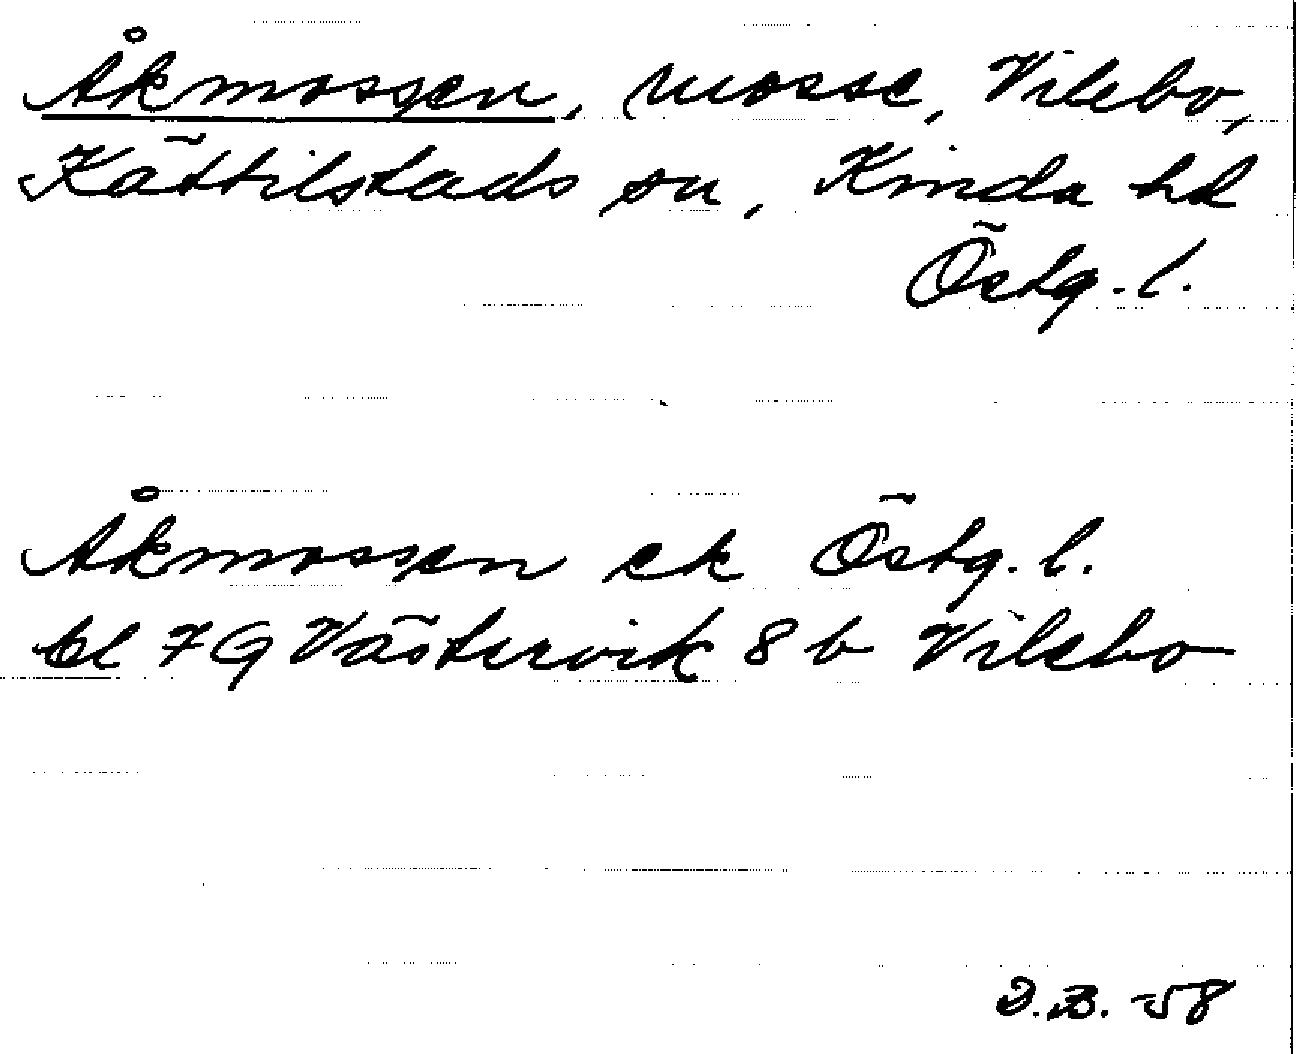 Åkmossen, mosse, Vilebo,
Kättilstads sn, Kinda hd
Östg. l.
Åkmossen ek Östg. l.
bl 7G Västervik 8 b Vilebo
D.B. -58